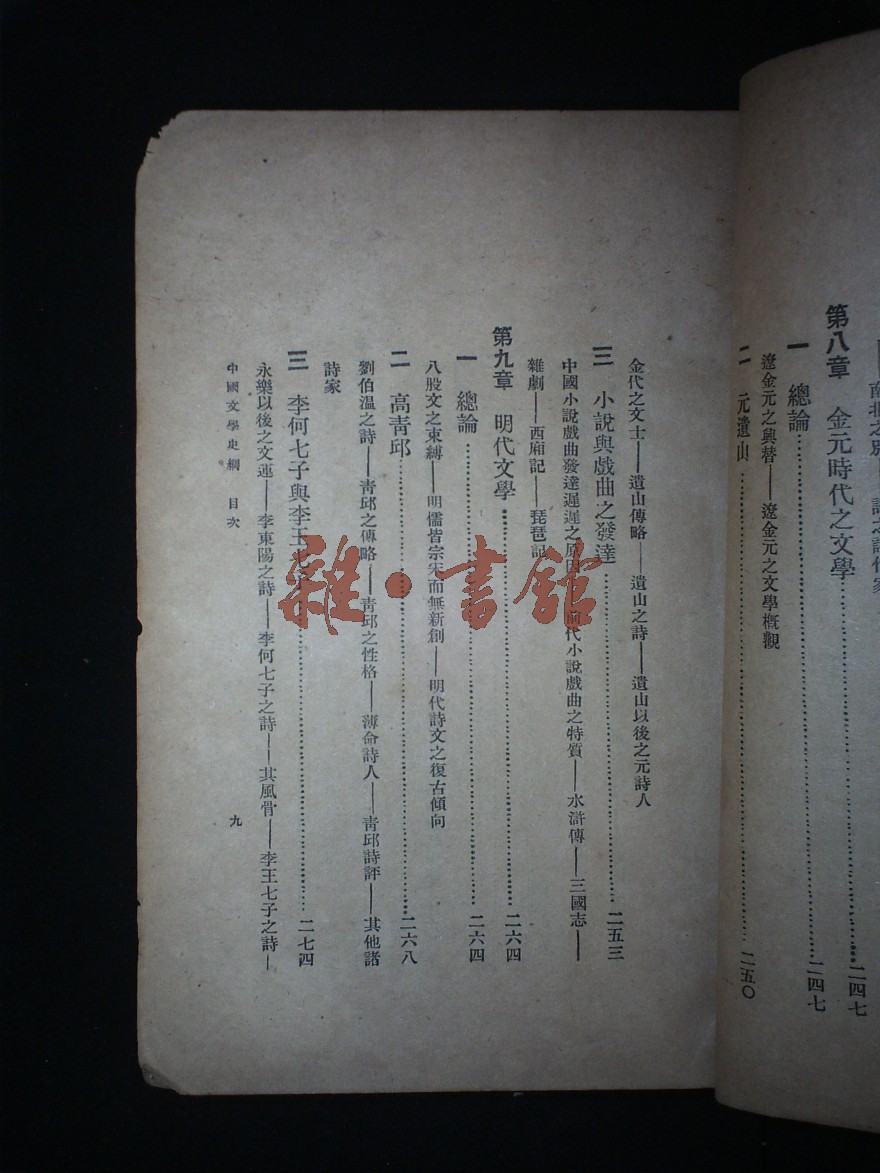 第八章　金元時代之文學……二四七
一　總論……二四七
遼金元之興替——遼金元之文學概觀
二　元遺山……二五〇
金代之文士——遺山傳略——遺山之詩——遺山以後之元詩人
三　小說與戲曲之發達……二五三
中國小說戲曲發達遲遲之原因——前代小說戲曲之特質——水滸傳——三國志——
雜劇——西廂記——琵琶記
第九章　明代文學……二六四
一　總論……二六四
八股文之束縛——明儒皆宗宋而無新創——明代詩文之復古傾向
二　高青邱……二六八
劉伯溫之詩——靑邱之傳略——靑邱之性格——薄命詩人——靑邱詩評——其他諸
詩家
三　李何七子與李王七子……二七四
永樂以後之文運——李東陽之詩——李何七子之詩——其風骨——李王七子之詩—
中國文學史綱　目次　九
雜·書館